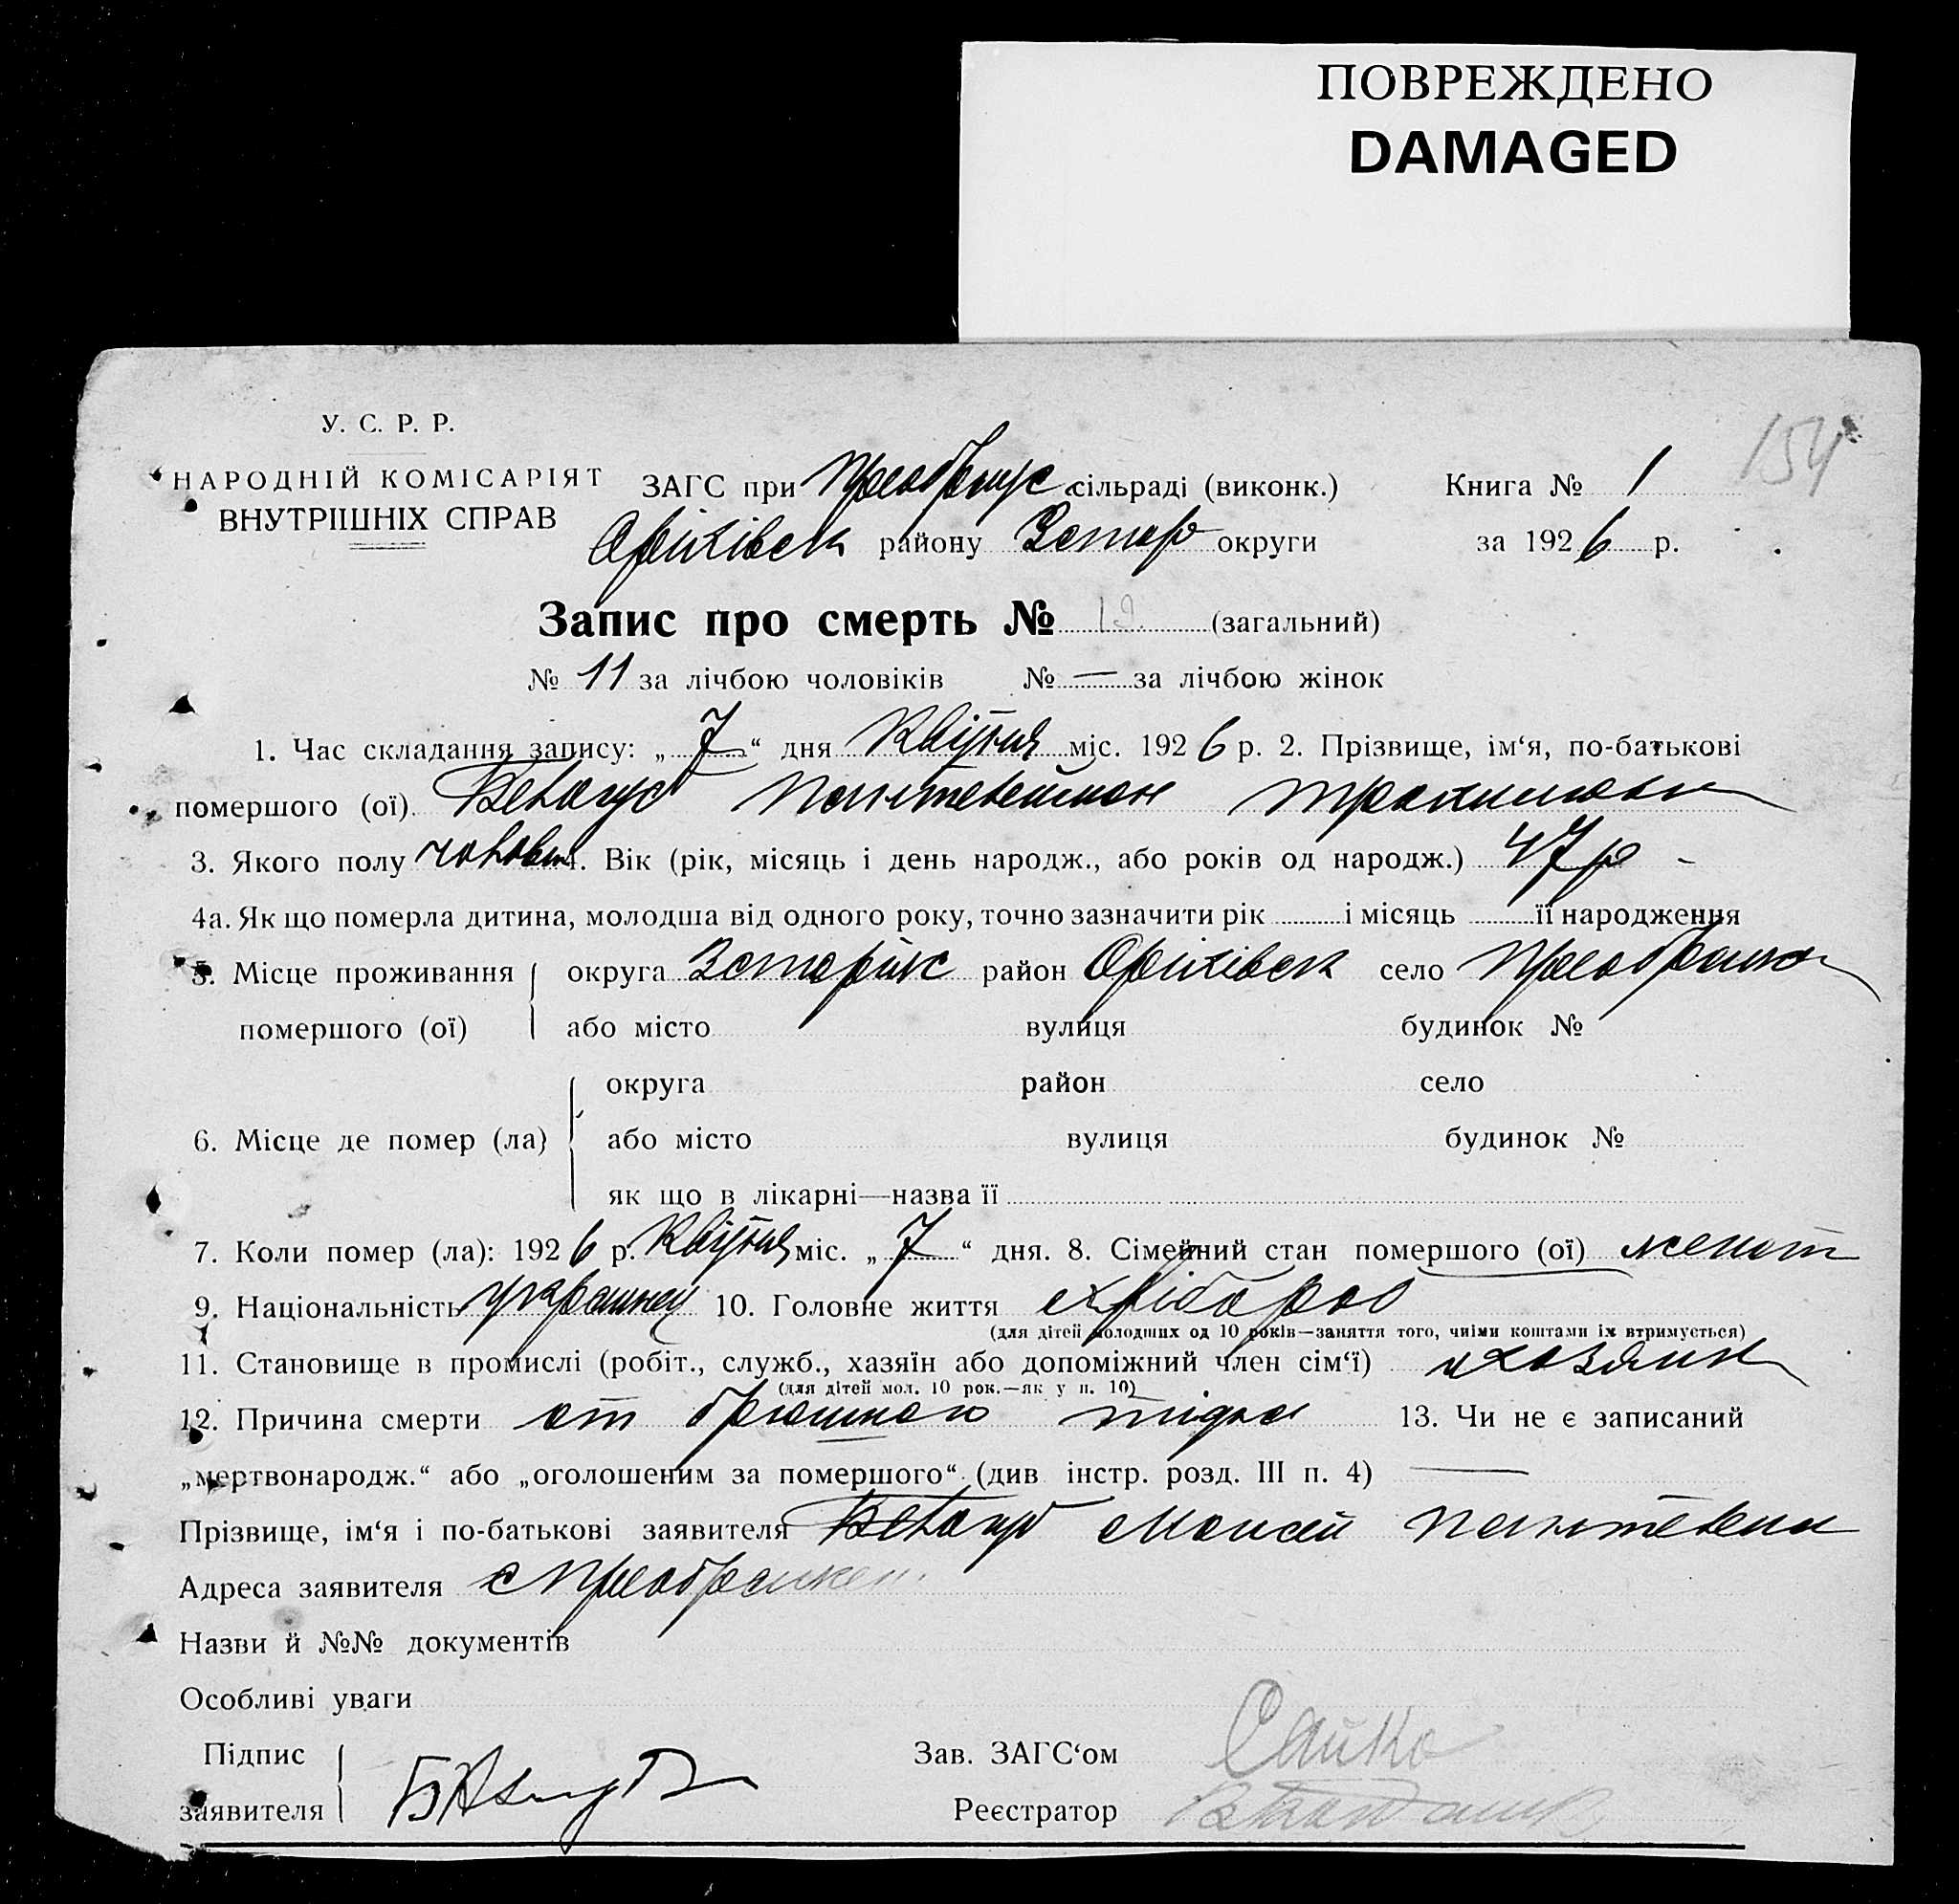 ПОВРЕЖДЕНО
DAMAGED
154
У. С. Р. Р.
НАРОДНІЙ КОМІСАРІЯТ
ВНУТРІШНІХ СПРАВ
ЗАГС при Преображ. сільраді (виконк.) Книга № 1
Оріхівск району Запор округи за 1926 р.
Запис про смерть № (загальний)
№ 11 за лічбою чоловіків № — за лічбою жінок
1. Час складання запису: „7“ дня Квітня міс. 1926 р. 2. Прізвище, ім‘я, по-батькові
помершого (ої) Пантелеймон
3. Якого полу чоловіч 4. Вік (рік, місяць і день народж., або років од народж.) 47 р
4а. Як що померла дитина, молодша від одного року, точно зазначити рік і місяць її народження
5. Місце проживання округа район Оріхівск село Преображен
помершого (ої) або місто вулиця будинок №
округа район село
6. Місце де помер (ла) або місто вулиця будинок №
як що в лікарні—назва її
7. Коли помер (ла): 1926 р. Квітня міс. „7“ дня. 8. Сімейний стан помершого (ої) женат
9. Національність украинец 10. Головне життя хрібороб
(для дітей молодших од 10 років—заняття того, чиїми коштами їх втримується)
11. Становище в промислі (робіт., служб., хазяїн або допоміжний член сім‘ї) хозяин
(для дітей мол. 10 рок.—як у п. 10)
12. Причина смерти от брюшного тифа 13. Чи не є записаний
„мертвонародж.“ або „оголошеним за помершого“ (див інстр. розд. III п. 4) —
Прізвище, ім‘я і по-батькові заявителя Моисей Пантелеим
Адреса заявителя с Преображен.
Назви й №№ документів
Особливі уваги
Підпис
заявителя
Зав. ЗАГС‘ом Сайко
Реєстратор